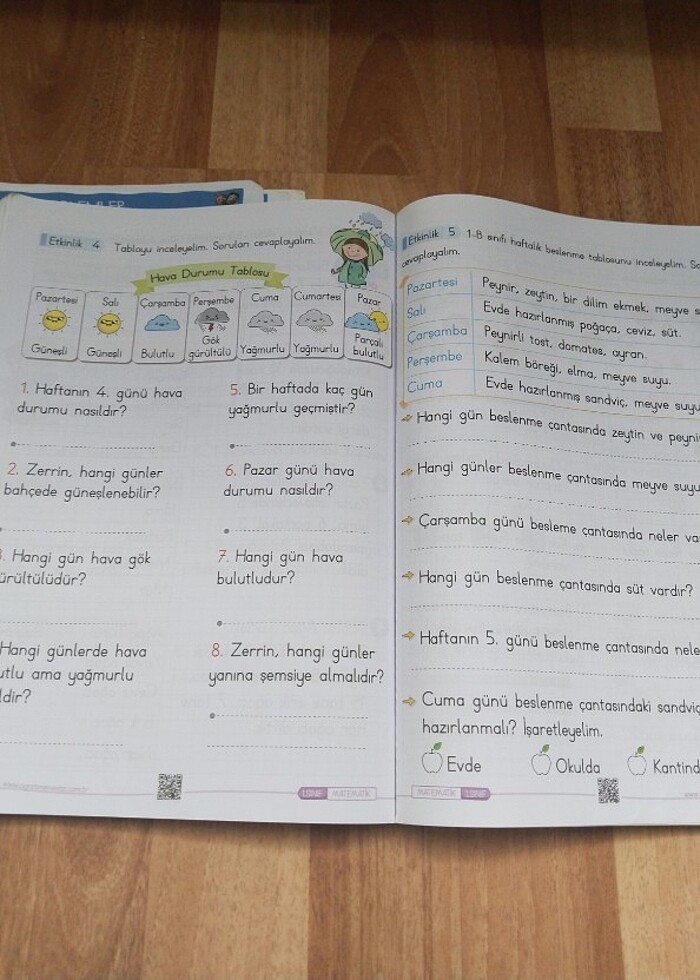 Etkinlik 4 Tabloyu inceleyelim. Soruları cevaplayalım.
Hava Durumu Tablosu
Pazartesi Salı Çarşamba Perşembe Cuma Cumartesi Pazar
Güneşli Güneşli Bulutlu Gök gürültülü Yağmurlu Yağmurlu Parçalı bulutlu
1. Haftanın 4. günü hava
durumu nasıldır?
2. Zerrin, hangi günler
bahçede güneşlenebilir?
Hangi gün hava gök
ürültülüdür?
Hangi günlerde hava
utlu ama yağmurlu
ldir?
5. Bir haftada kaç gün
yağmurlu geçmiştir?
6. Pazar günü hava
durumu nasıldır?
7. Hangi gün hava
bulutludur?
8. Zerrin, hangi günler
yanına şemsiye almalıdır?
1.SINIF MATEMATİK
Etkinlik 5 1-B sınıfı haftalık beslenme tablosunu inceleyelim.
cevaplayalım.
Pazartesi Peynir, zeytin, bir dilim ekmek, meyve s
Salı Evde hazırlanmış poğaça, ceviz, süt.
Çarşamba Peynirli tost, domates, ayran.
Perşembe Kalem böreği, elma, meyve suyu.
Cuma Evde hazırlanmış sandviç, meyve suyu
Hangi gün beslenme çantasında zeytin ve peyni
Hangi günler beslenme çantasında meyve suyu
Çarşamba günü besleme çantasında neler va
Hangi gün beslenme çantasında süt vardır?
Haftanın 5. günü beslenme çantasında nele
Cuma günü beslenme çantasındaki sandviç
hazırlanmalı? İşaretleyelim.
Evde Okulda Kantind
MATEMATİK 1.SINIF